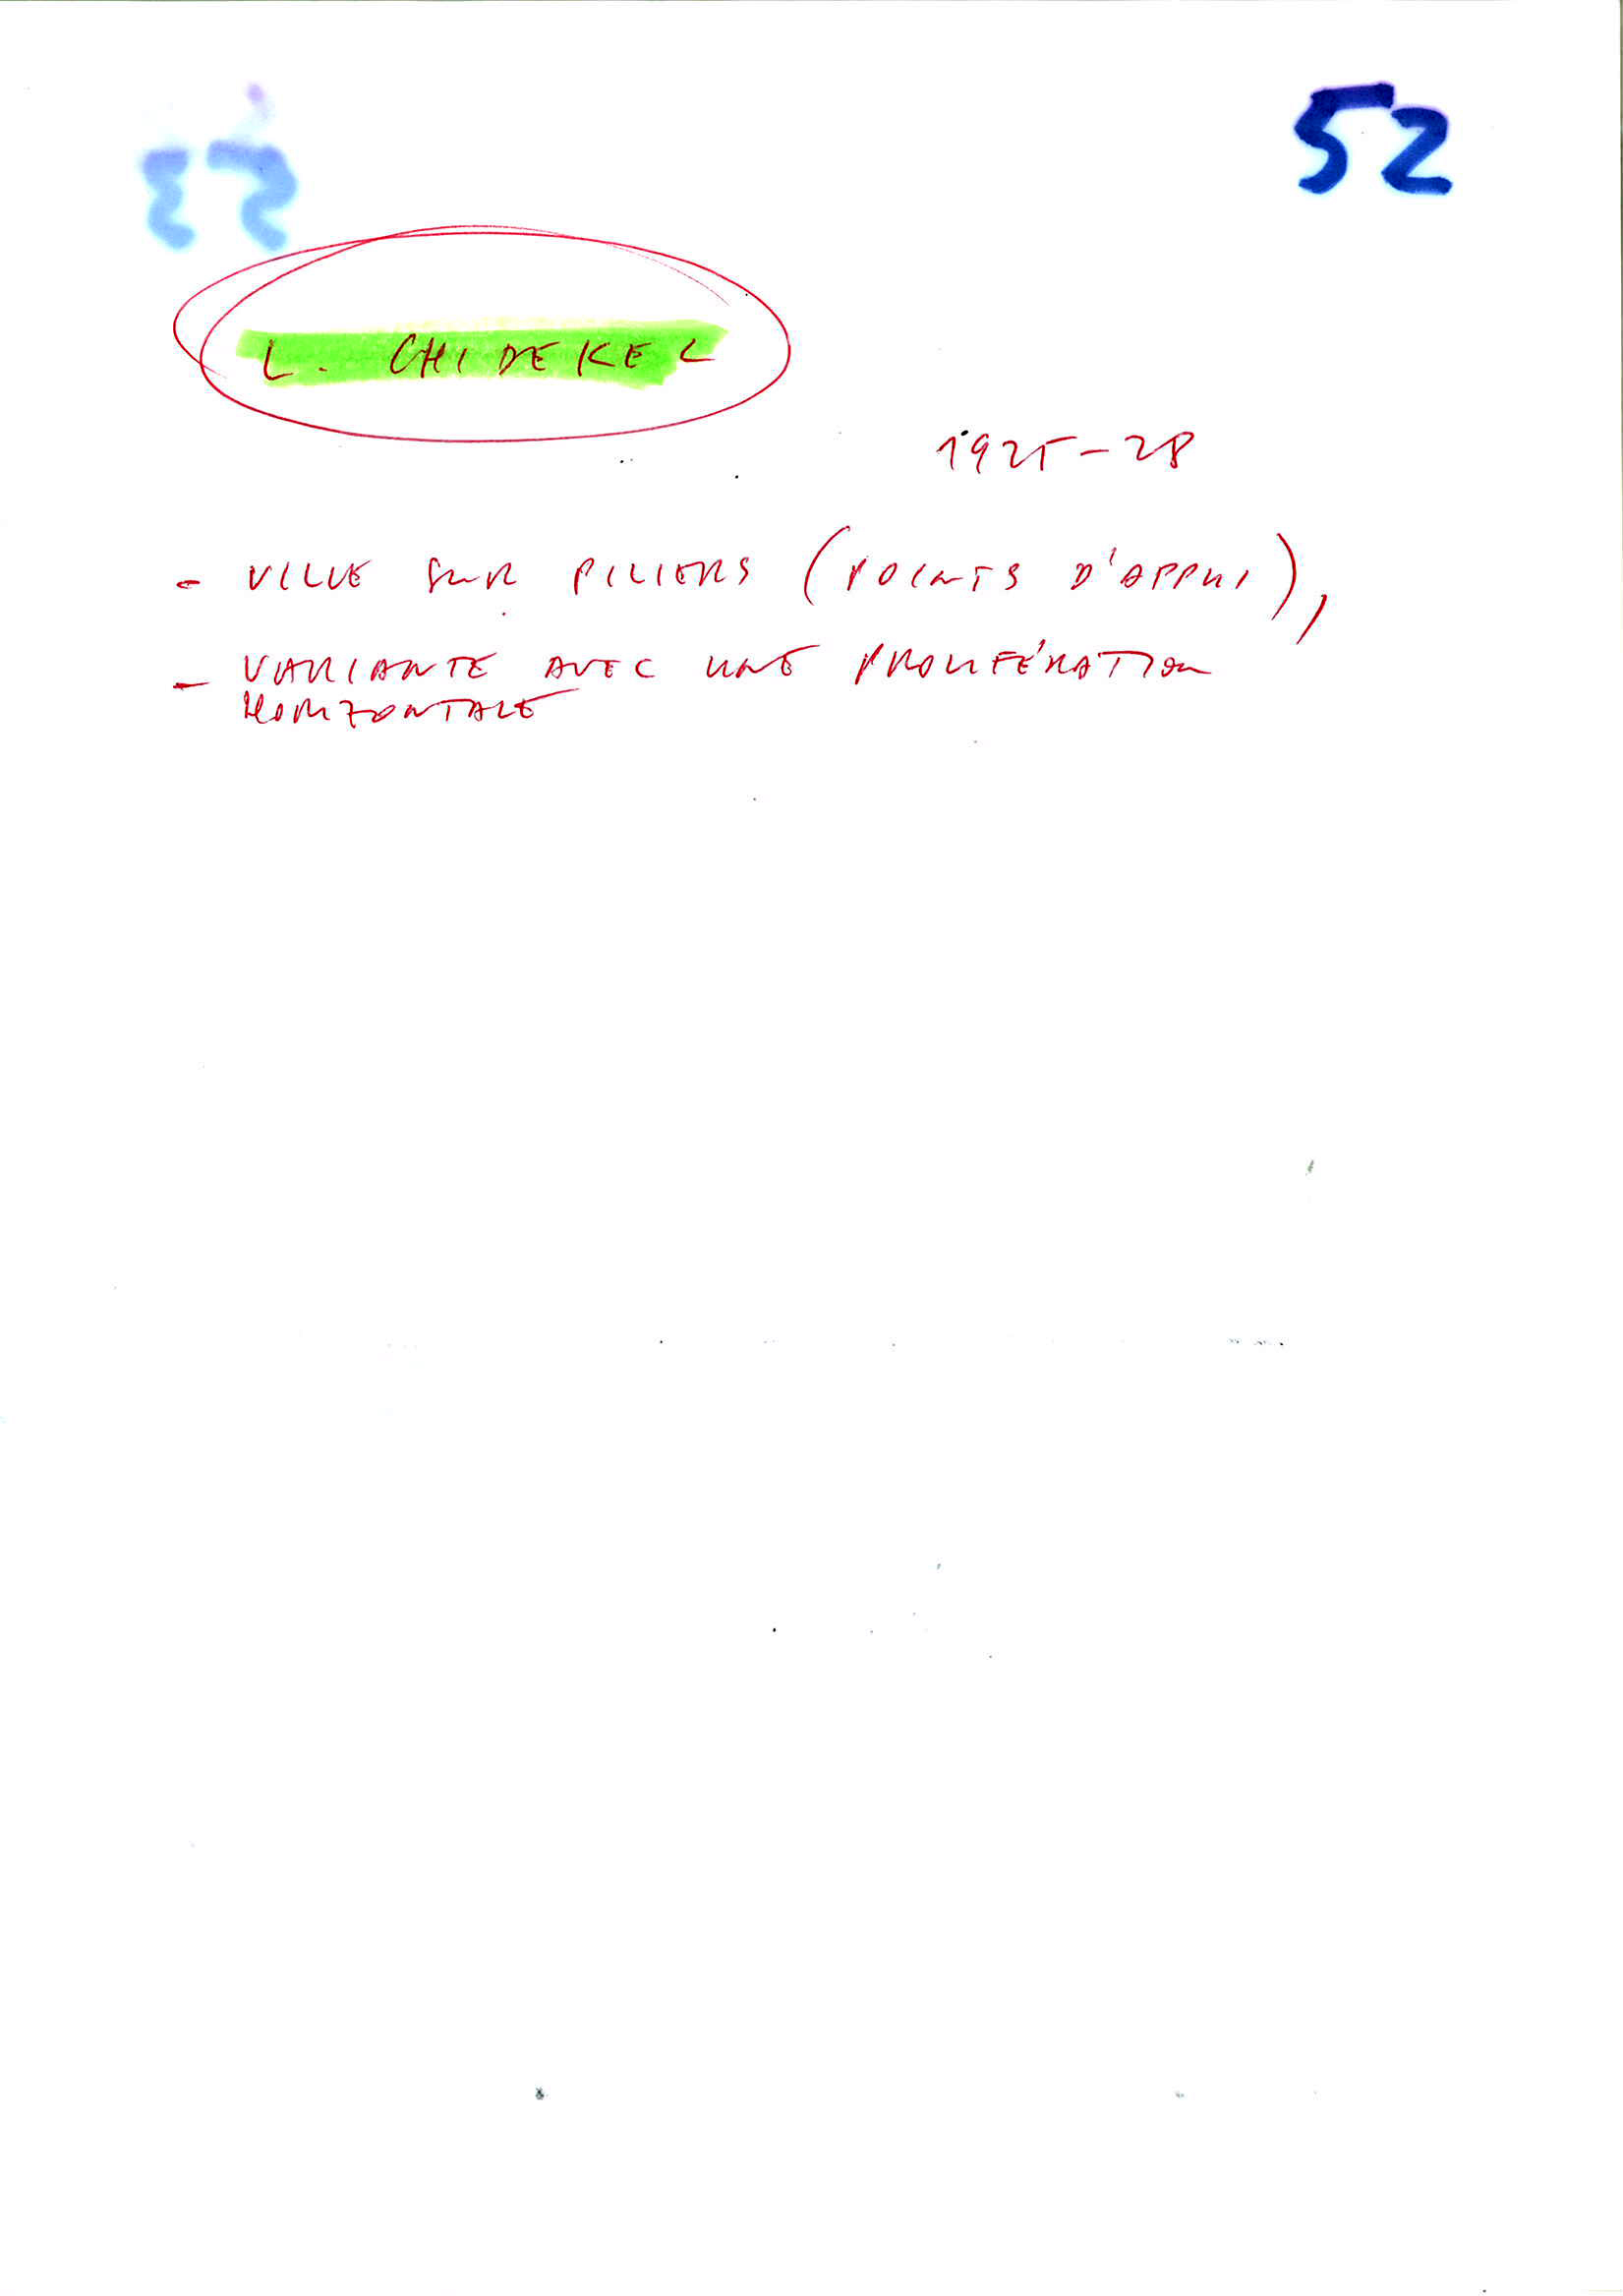 52
L. CHIDEKEL
1925-28
- VILLE SUR PILIERS (POINTS D'APPUI),
- VARIANTE AVEC UNE PROLIFÉRATION
HORIZONTALE